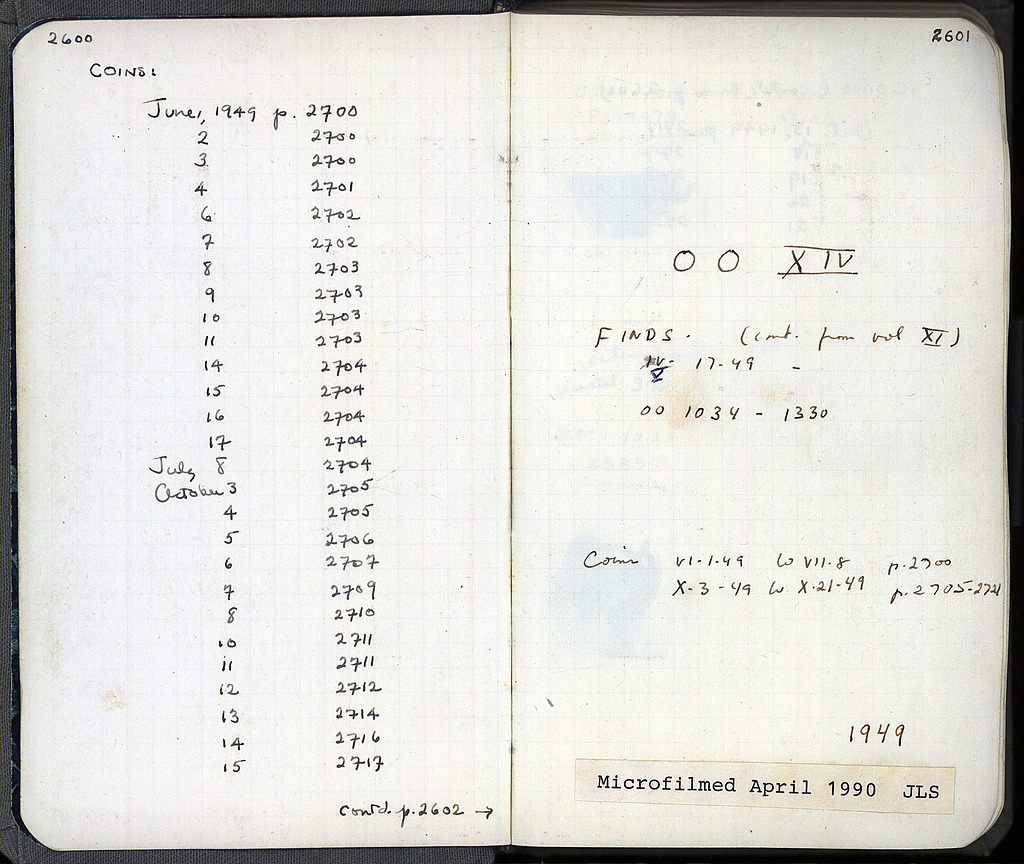 2600
COINS:
June 1, 1949 p. 2700
2 2700
3 2700
4 2701
6 2702
7 2702
8 2703
9 2703
10 2703
11 2703
14 2704
15 2704
16 2704
17 2704
July 8 2704
October 3 2705
4 2705
5 2706
6 2707
7 2709
8 2710
10 2711
11 2711
12 2712
13 2714
14 2716
15 2717
cont'd. p. 2602 →
2601
OO XIV
FINDS. (cont. from vol XI)
V 17-49 -
OO 1034 - 1330
Coins VI-1-49 to VII-8 p. 2700
X-3-49 to X-21-49 p. 2705-2721
1949
Microfilmed April 1990 JLS